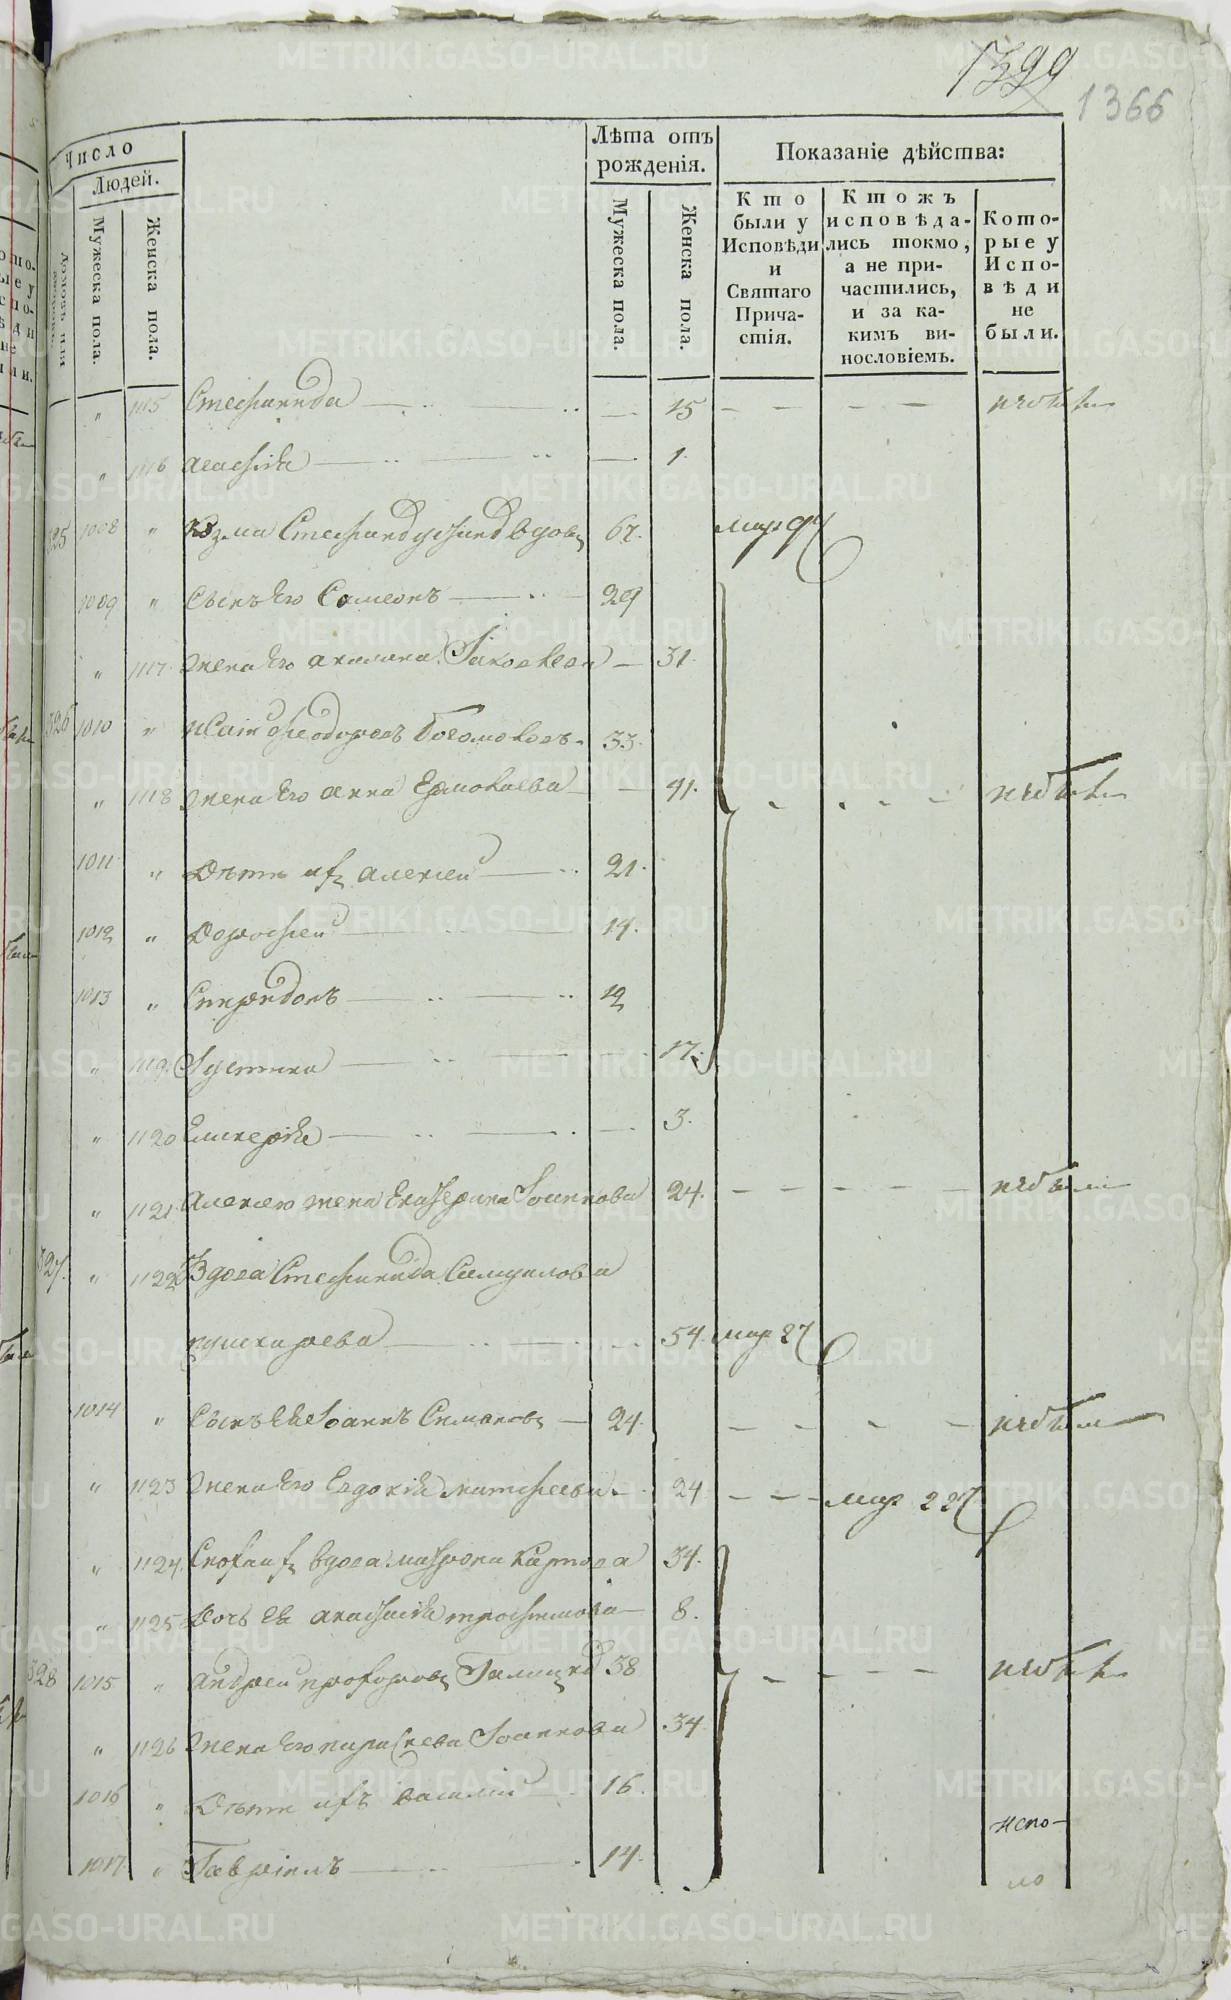 1399
1366
Число
Людей.
Мужеска пола.
Женска пола.
Лѣта отъ
рожденія.
Мужеска пола.
Женска пола.
Показаніе дѣйства:
Кто
были у
Исповѣди
и
Святаго
Прича-
стія.
Ктожъ
исповѣда-
лись токмо,
а не при-
частились,
и за ка-
кимъ ви-
нословіемъ.
Кото-
рые у
Испо-
вѣди
не
были.
" 1115 Стефанида 15 небыли
" 1116 1
325 1008 " Козма Стефановъ вдовъ 67 мар
1009 " Сынъ Его Симеонъ 29
" 1117 Жена Его Акилина Іаковлева 31
326 1010 " Исаія Феодоровъ Богомоловъ 33
" 1118 Жена Его Анна Ермолаева 41 небыли
1011 " Дѣти ихъ Алексей 21
1012 " Дорофей 14
1013 " Спиридонъ 12
" 1119 Іустина 17
" 1120 Гликерія 3
" 1121 Алексею жена Екатерина Іоаннова 24 небыли
327 " 1122 Вдова Стефанида Самуилова
Пушкарева 54 мар 27
1014 " Сынъ Ея Іоаннъ Симановъ 24 небыли
" 1123 Жена Его Евдокія Матфеева 24 мар 227
" 1124 Сноха ихъ вдова Матрона Карпова 34
" 1125 Дочь Ея Анастасія Трофимова 8
328 1015 " Андрей Прохоровъ Галицкой 38 небыли
" 1126 Жена Его Параскева Іоаннова 34
1016 " Дѣти ихъ Василий 16
1017 " Гавріилъ 14
Испо-